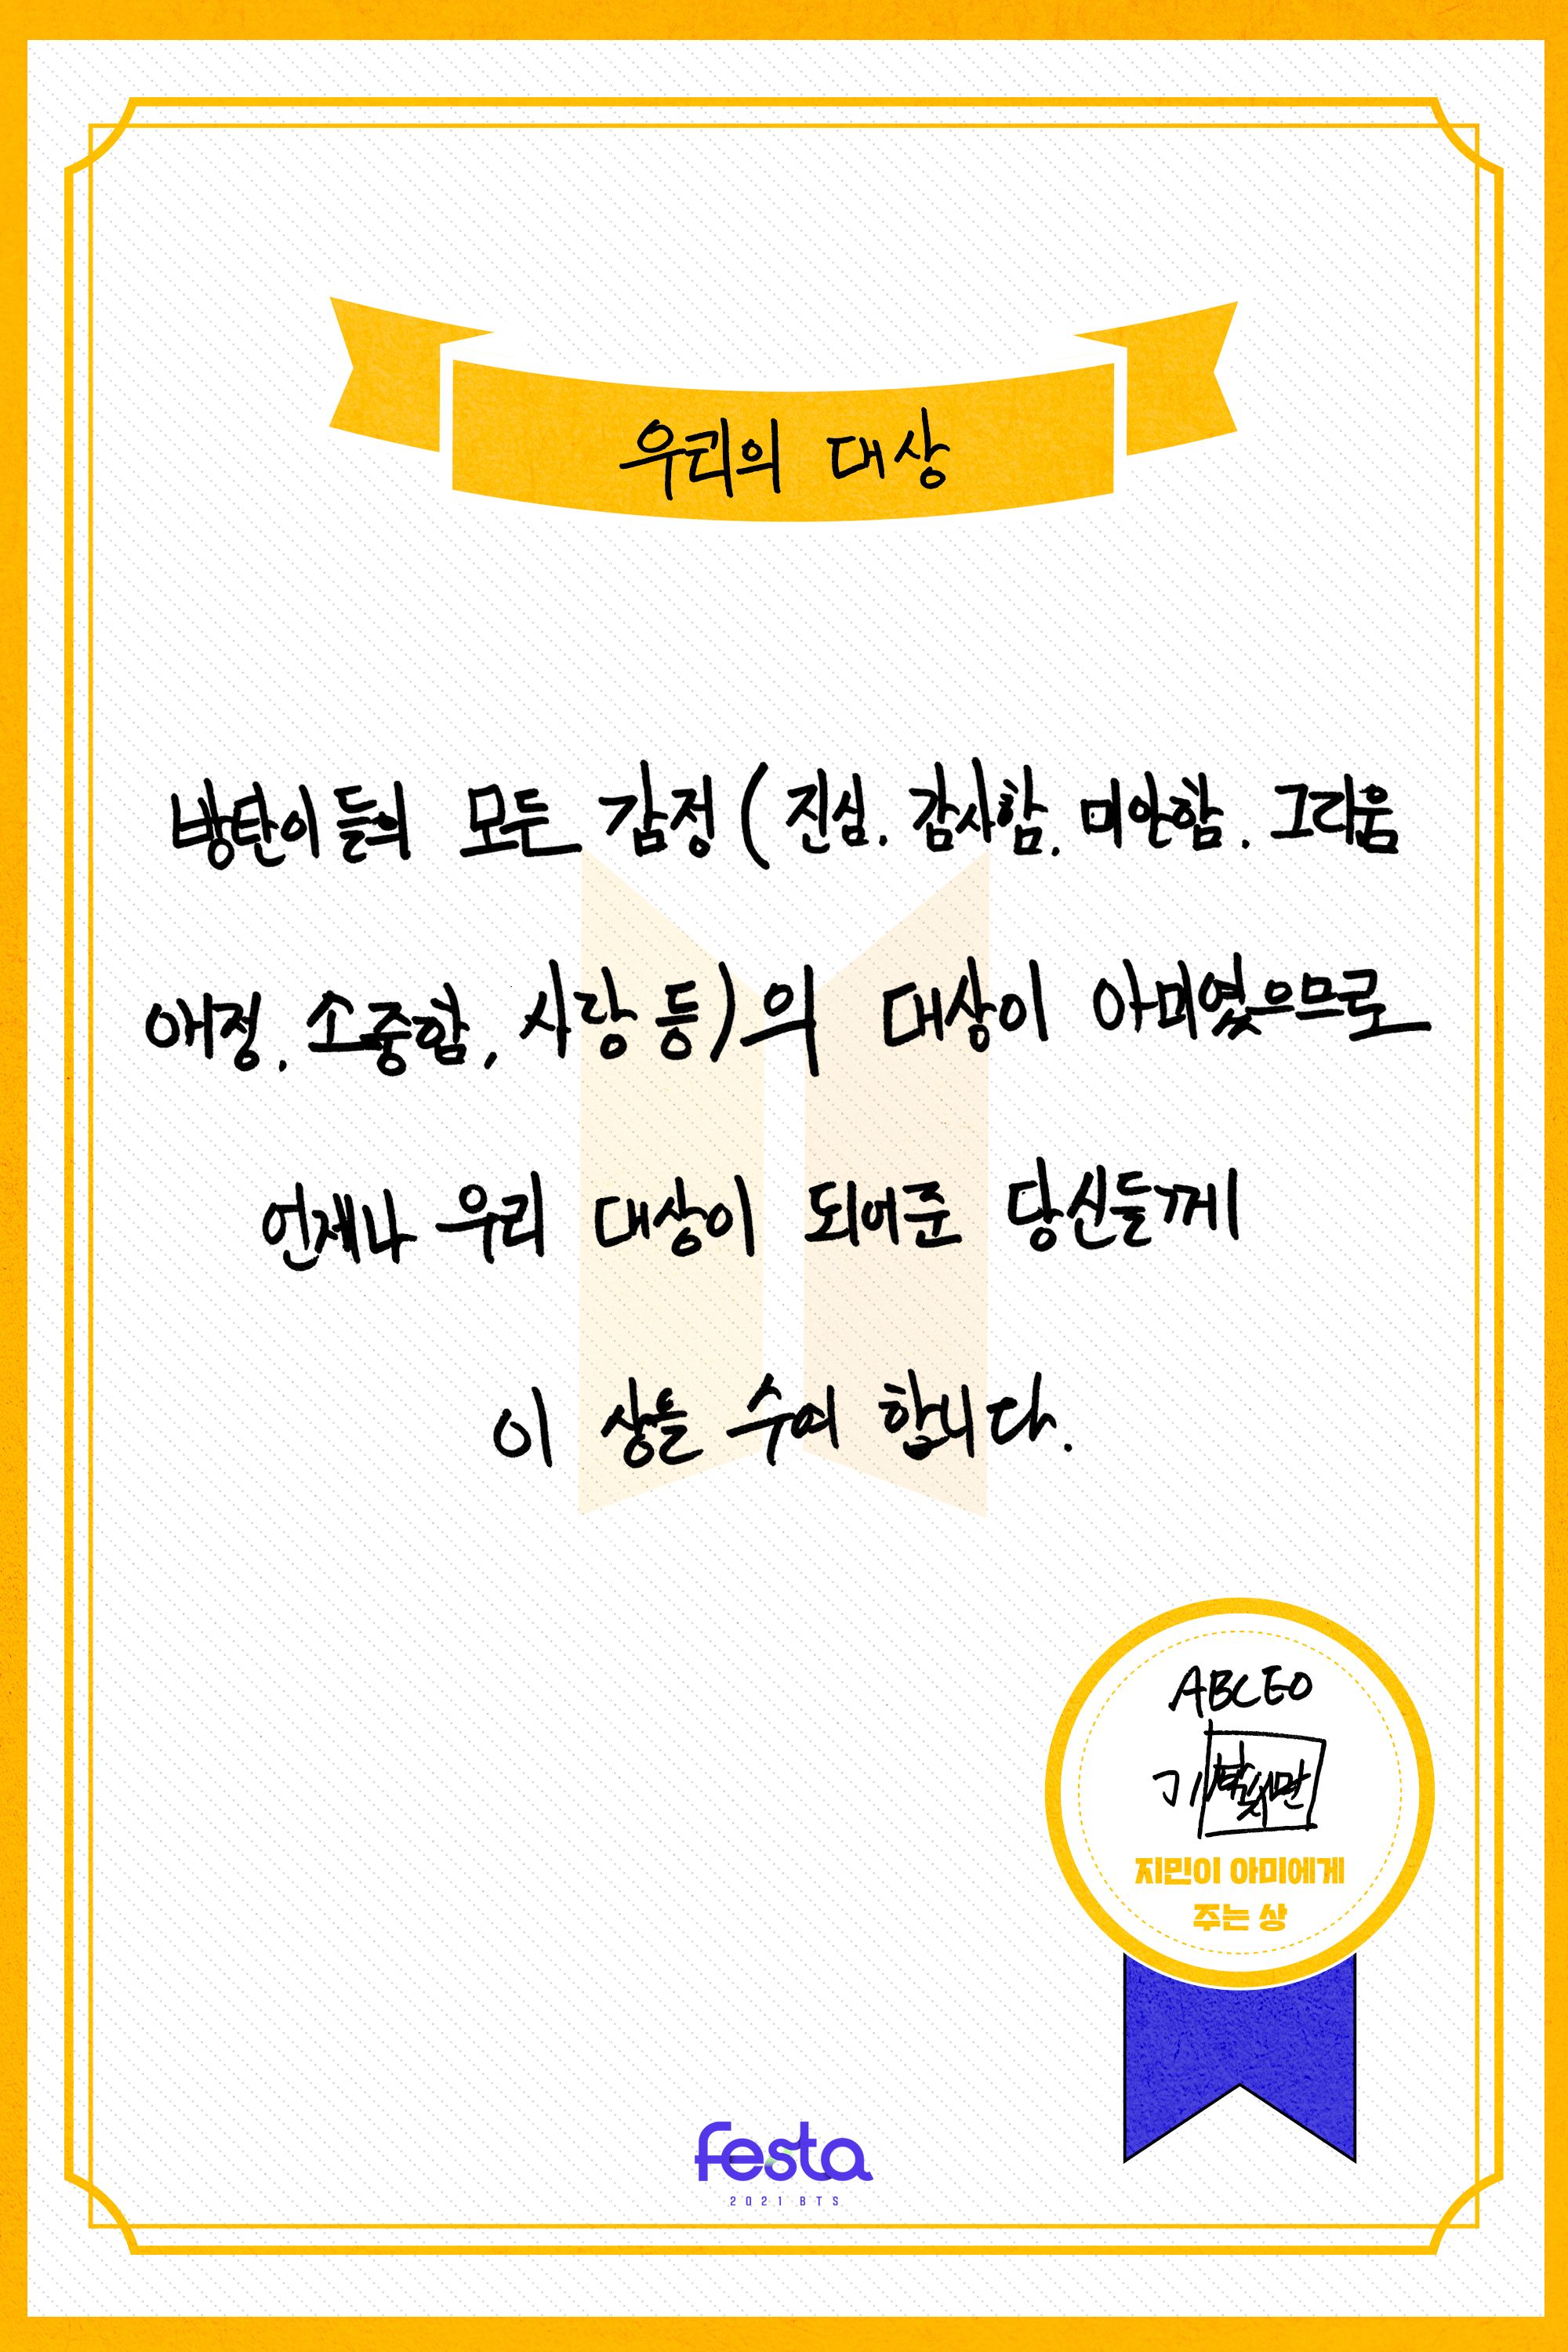 우리의 대상
방탄이들의 모든 감정 (진심. 감사함. 미안함. 그리움
애정. 소중함, 사랑 등)의 대상이 아미였으므로
언제나 우리 대상이 되어준 당신들께
이 상을 수여 합니다.
ABCEO
지민이 아미에게
주는 상
festa
2021 BTS